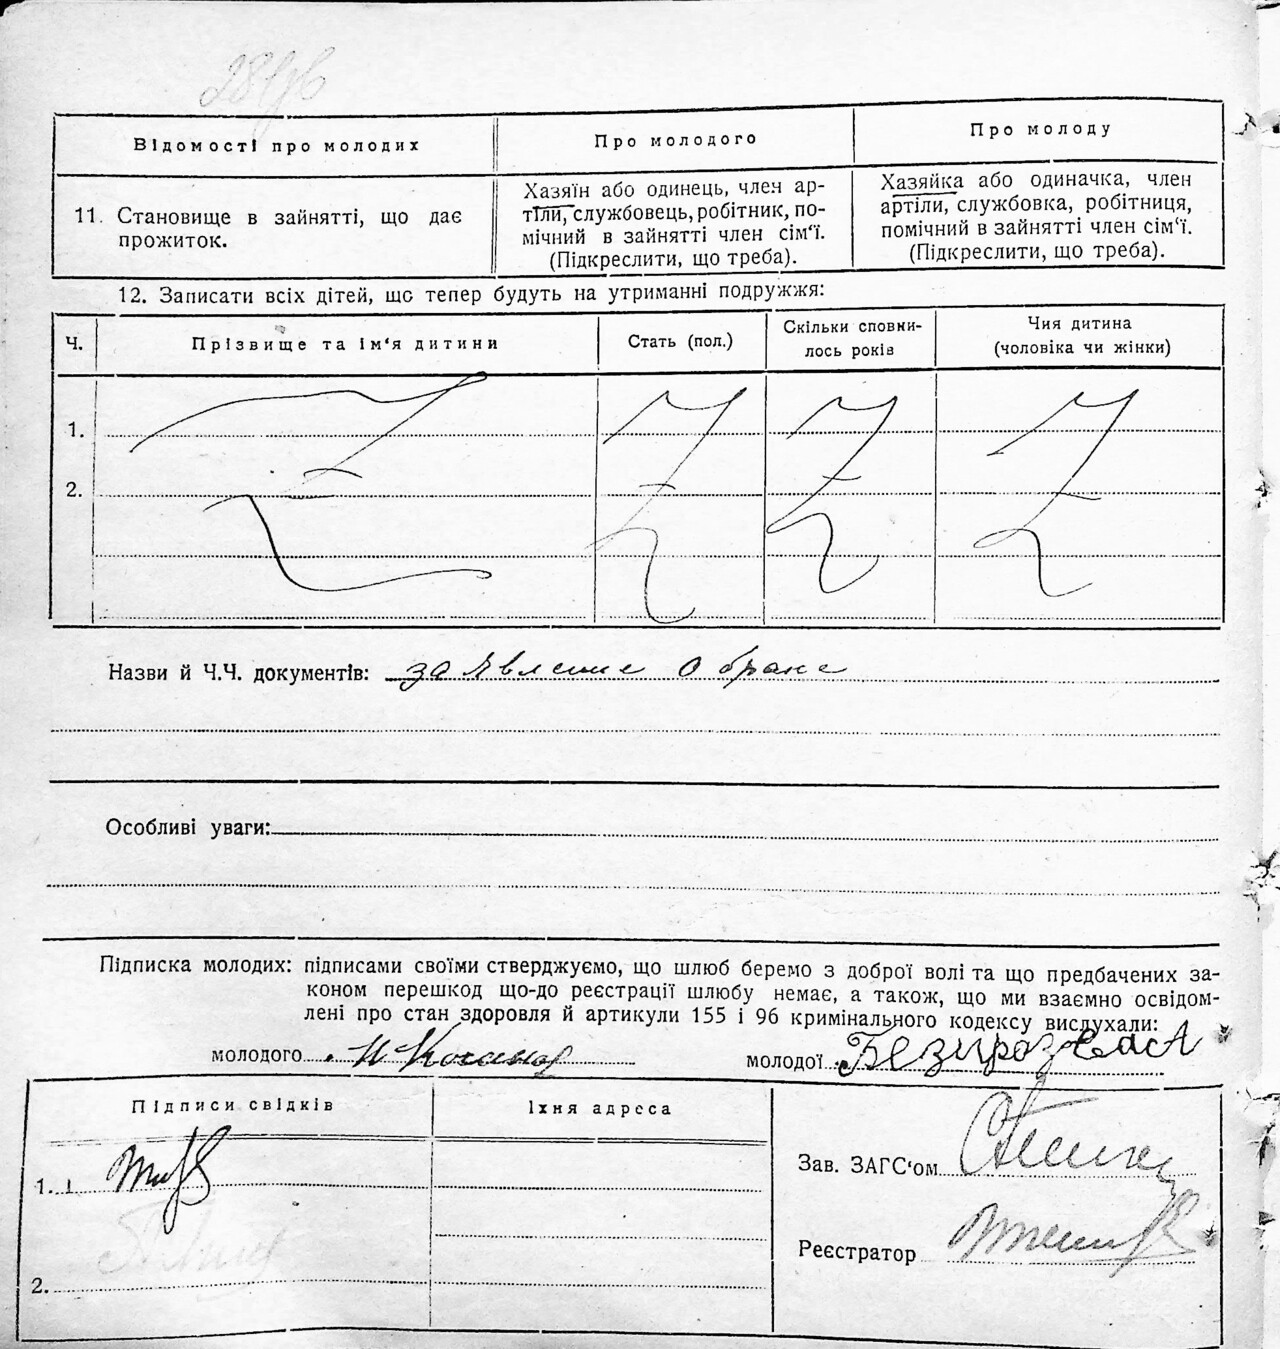 Відомості про молодих
Про молодого
Про молоду
11. Становище в зайнятті, що дає
прожиток.
Хазяїн або одинець, член ар-
тіли, службовець, робітник, по-
мічний в зайнятті член сім'ї.
(Підкреслити, що треба).
Хазяйка або одиначка, член
артіли, службовка, робітниця,
помічний в зайнятті член сім'ї.
(Підкреслити, що треба).
12. Записати всіх дітей, що тепер будуть на утриманні подружжя:
Ч.
Прізвище та ім'я дитини
Стать (пол.)
Скільки сповни-
лось років
Чия дитина
(чоловіка чи жінки)
1.
2.
Назви й Ч.Ч. документів: заявление о браке
Особливі уваги:
Підписка молодих: підписами своїми стверджуємо, що шлюб беремо з доброї волі та що предбачених за-
коном перешкод що-до реєстрації шлюбу немає, а також, що ми взаємно освідом-
лені про стан здоровля й артикули 155 і 96 кримінального кодексу вислухали:
молодого
молодої
Підписи свідків
Їхня адреса
1.
2.
Зав. ЗАГС'ом
Реєстратор